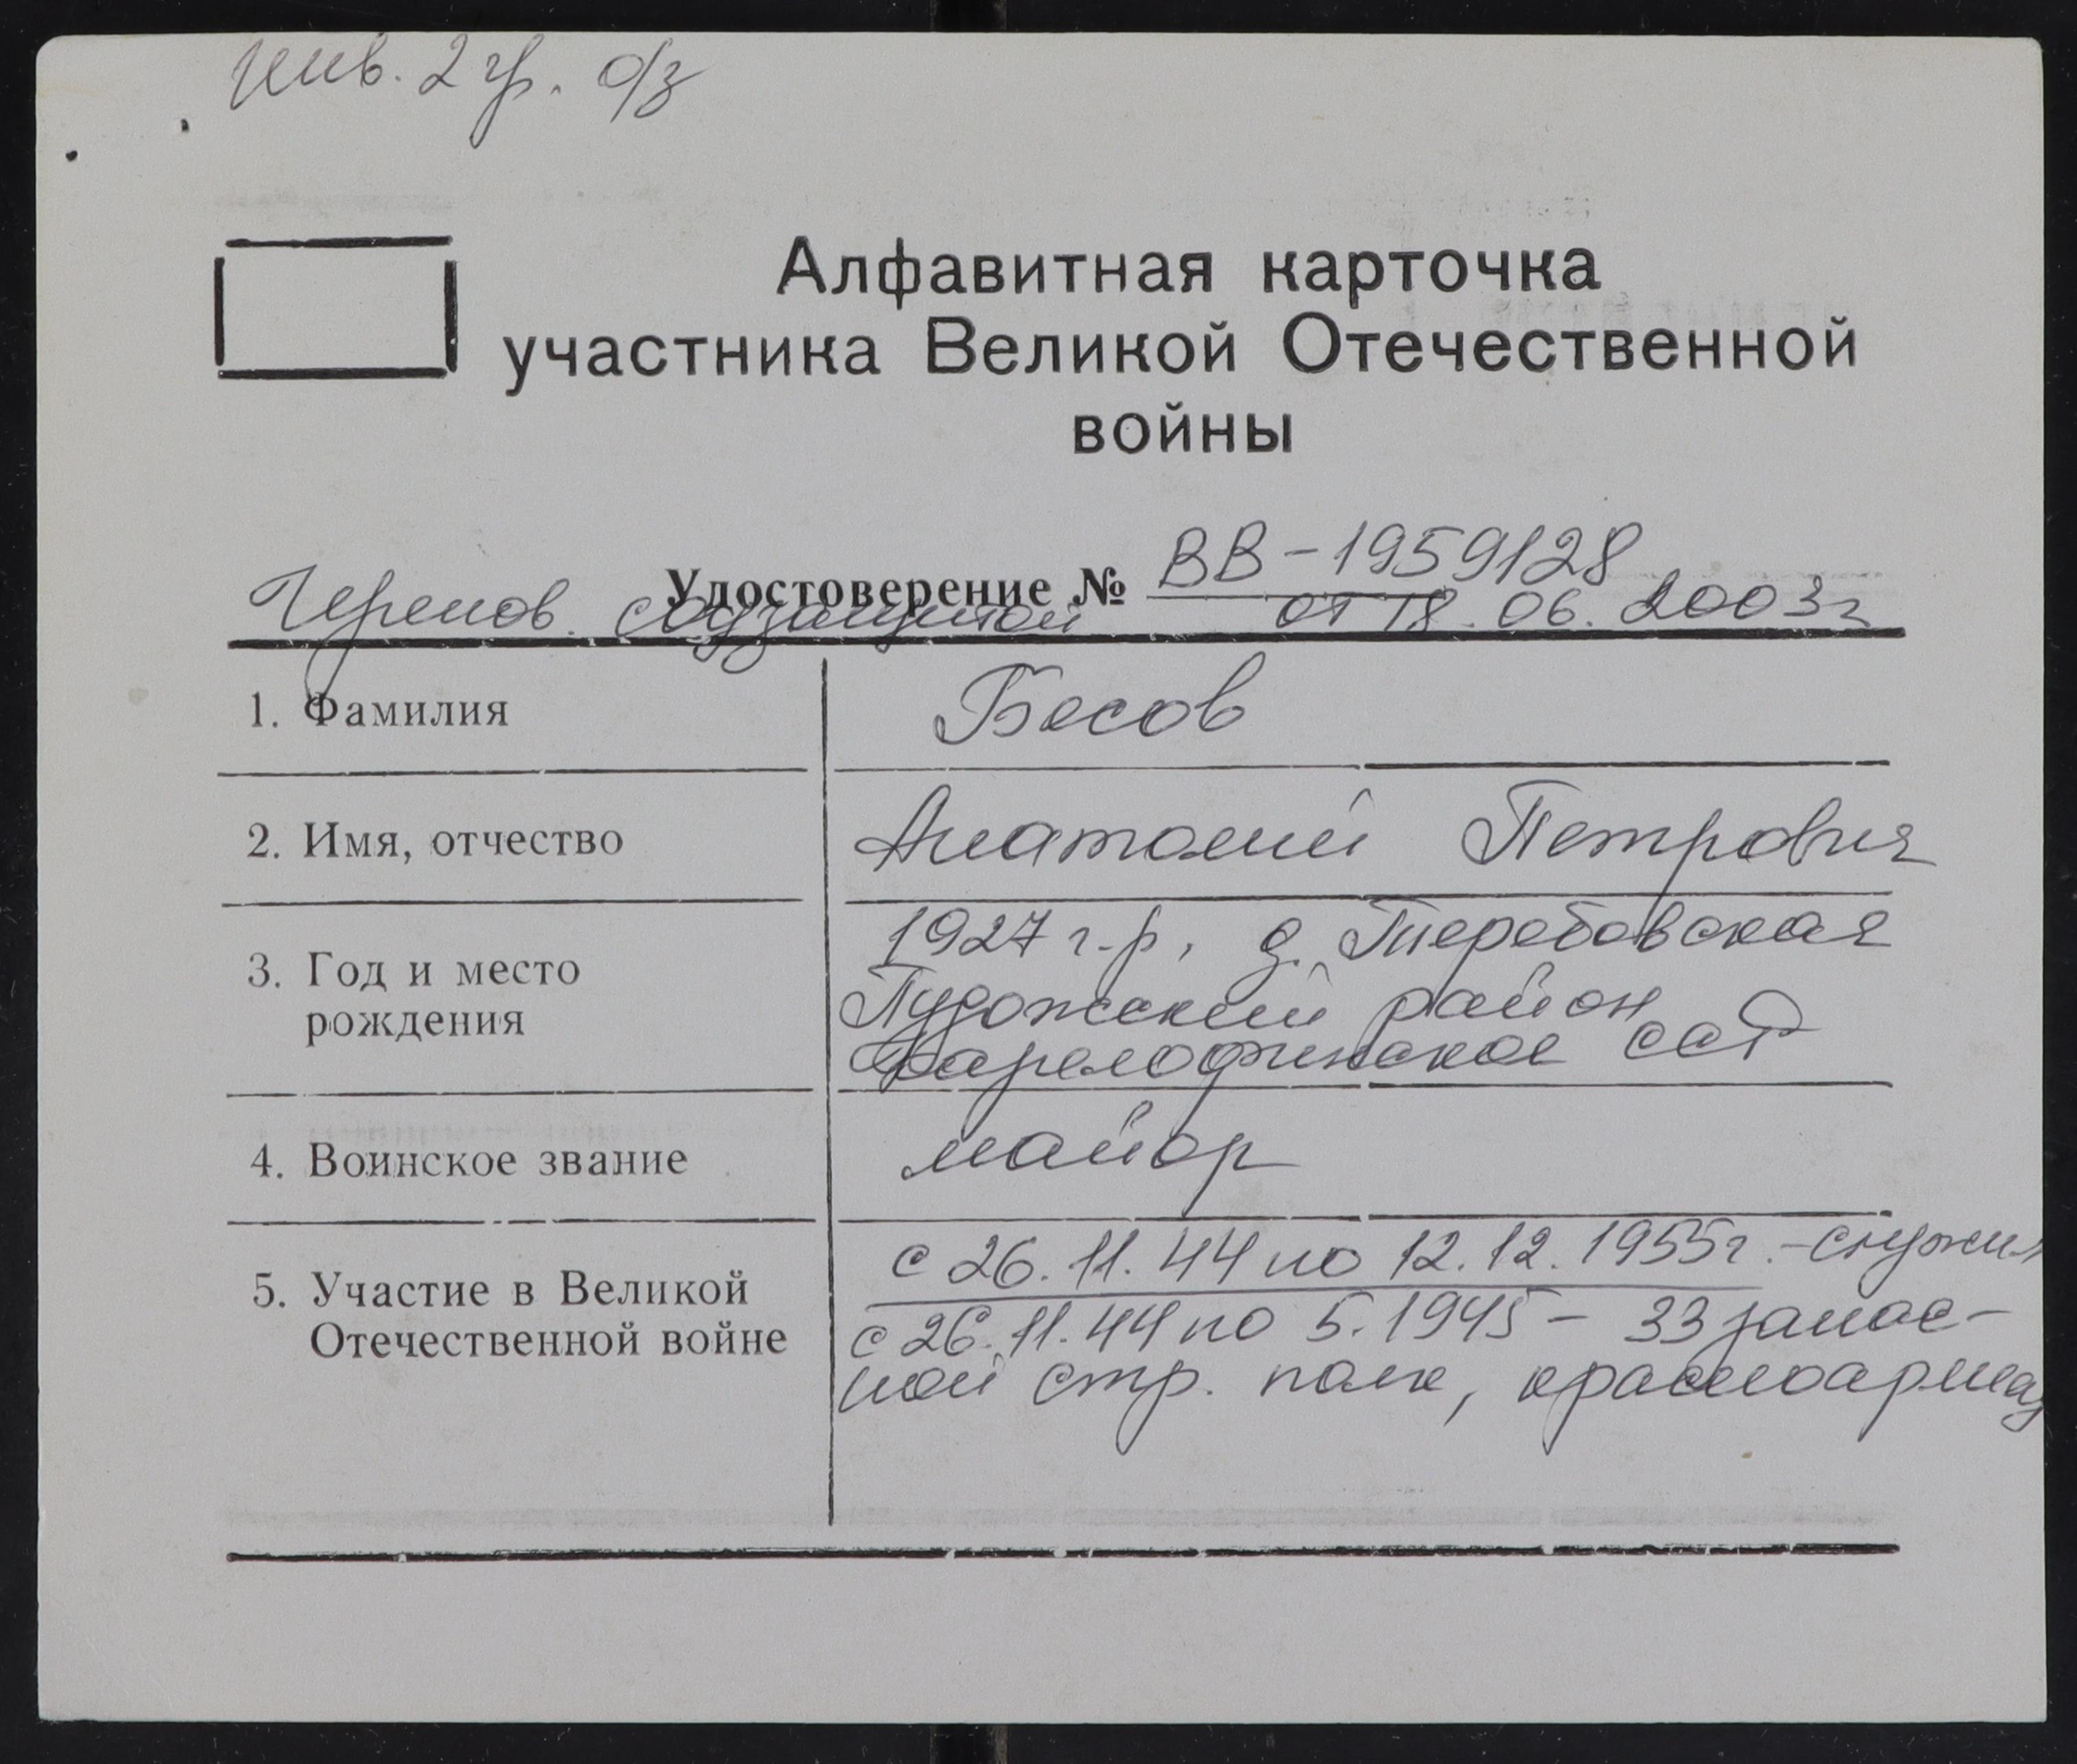 Инв. 2 гр. о/з
Алфавитная карточка
участника Великой Отечественной
войны
Удостоверение № ВВ-1959128
Черепов. соцзащитой от 18.06.2003г
1. Фамилия Бесов
2. Имя, отчество Анатолий Петрович
3. Год и место рождения 1927 г.р., д. Теребовская
Пудожский район
Карелофинское ССР
4. Воинское звание майор
5. Участие в Великой Отечественной войне с 26.11.44 по 12.12.1955г. - служил
с 26.11.44 по 5.1945 - 33 запас-
ной стр. полк, красноармец